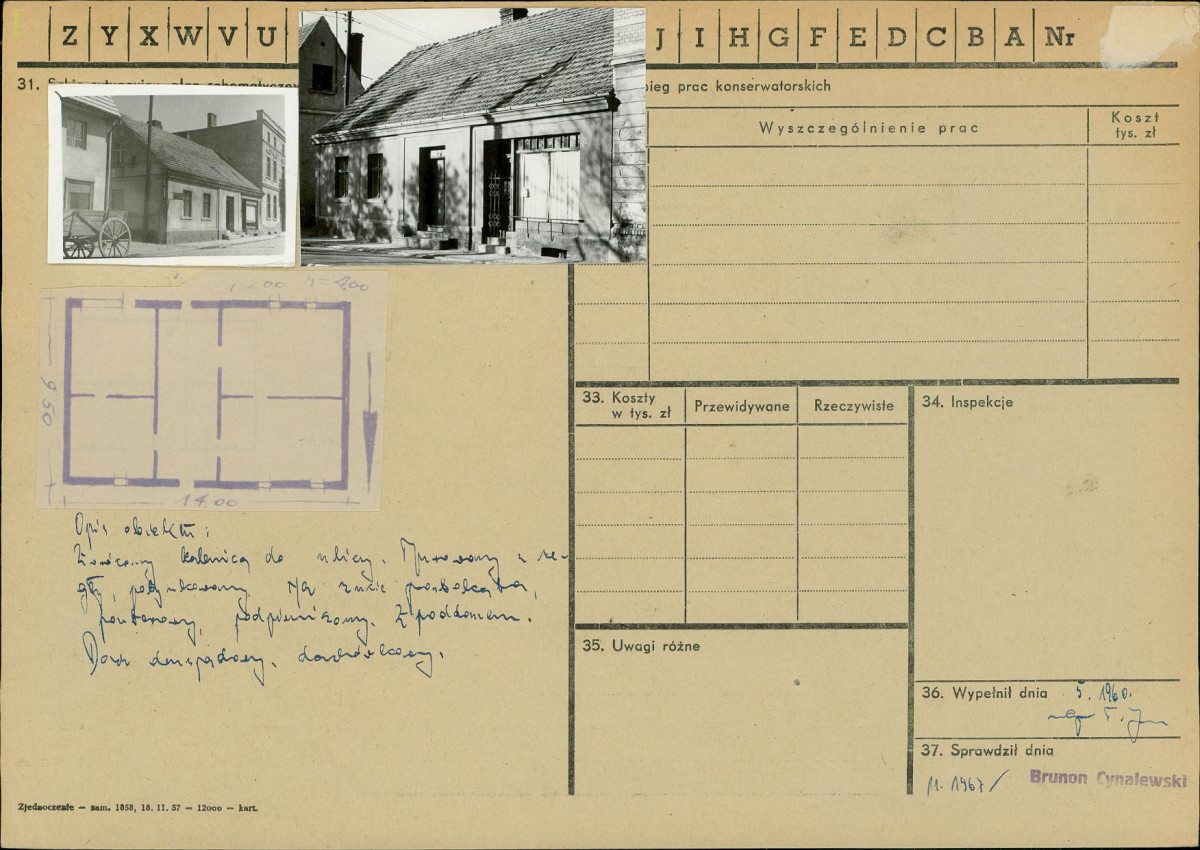 Z Y X W V U
J I H G F E D C B A Nr
31.
bieg prac konserwatorskich
Wyszczególnienie prac
Koszt
tys. zł
1:200 h=4.00
9.50
14.00
Opis obiektu:
Zwrócony kalenicą do ulicy. Murowany z ce-
gły, potynkowany. Na rzucie prostokąta,
parterowy, podpiwniczony. Z poddaszem.
Dach dwuspadowy, dachówkowy.
33. Koszty
w tys. zł
Przewidywane
Rzeczywiste
34. Inspekcje
35. Uwagi różne
36. Wypełnił dnia 5. 1960.
mgr
37. Sprawdził dnia
11. 1967/
Brunon Cynalewski
Zjednoczenie — zam. 1858, 18. 11. 57 — 12000 — kart.